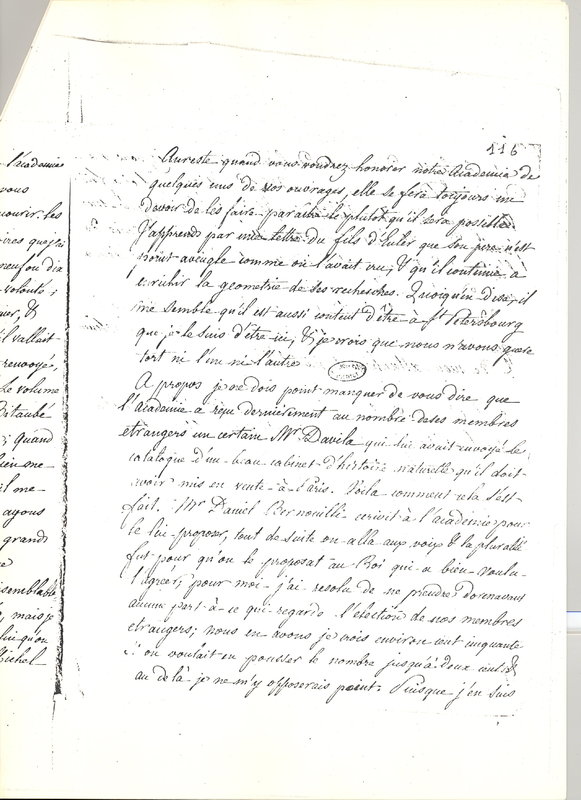 116
Aureste quand vous voudrez honorer notre Academie de
quelques uns de vos ouvrages, elle se fera toujours un
devoir de les faire paraitre le plutot qu'il sera possible.
J'apprends par une lettre du fils d'Euler que son pere n'est
point aveugle comme on l'avait cru, & qu'il continue a
enrichir la geometrie de ses recherches. Quoiqu'en dise, il
me semble qu'il est aussi content d'être à St Petersbourg
que je le suis d'être ici, & je crois que nous n'avons
tort ni l'un ni l'autre
A propos je ne dois point manquer de vous dire que
l'Academie a reçu dernierement au nombre de ses membres
etrangers un certain Mr Davila qui lui avait envoyé le
catalogue d'un beau cabinet d'histoire naturelle qu'il doit
avoir mis en vente à Paris. Voila comment cela s'est
fait. Mr Daniel Bernouilli ecrivit à l'academie pour
le lui proposer, tout de suite on alla aux voix & la pluralité
fut pour qu'on le proposat au Roi qui a bien voulu
l'agreer; pour moi j'ai resolu de ne prendre dorenavant
aucune part à ce qui regarde l'élection de nos membres
etrangers; nous en avons je crois environ cent cinquante
on voulait en pousser le nombre jusqu'à deux cents &
au delà je ne m'y opposerais point. Puisque j'en suis
l'academie
vous
mourir les
neuf ou dix
volonté;
il vallait
renvoyé,
le volume
; quand
il me
ayons
grands
, mais je
lui qu'on
Michel